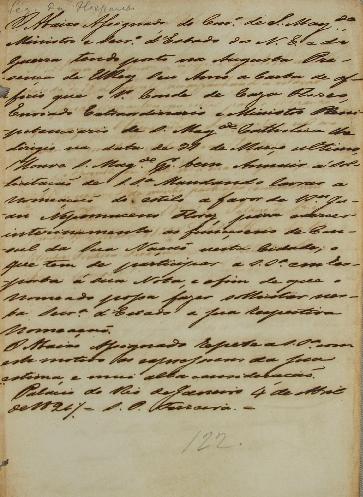 O Abaixo Assignado do Cons.º de S. Mag.de
Ministro e Secr.º d'Estado dos N. E. e da
Guerra tendo posto na Augusta Pre-
sença de ElRey seu Amo a Carta de of-
ficio que o S.r Conde de Caza Flores,
Enviado Extraordinario e Ministro Pleni
potenciario de S. Mag.de Catholica lhe
dirigio na data de 29 de Março ultimo,
Houve S. Mag.de por bem
de mandar lavrar a
nomeação do estilo a favor de
para exercer
interinamente as funcções de Con-
sul da sua Nação nesta Cidade, o
que tem de participar a S. S.ª em res-
posta á sua Nota, e afim de que o
nomeado possa fazer sollicitar nes-
ta Secr.ª d'Estado a sua respectiva
Nomeação.
O Abaixo Assignado repete a S. S.ª com
este motivo as expressoens da sua
estima e mui alta consideração.
Palacio do Rio de Janeiro 4 de Abril
de 1821
122.